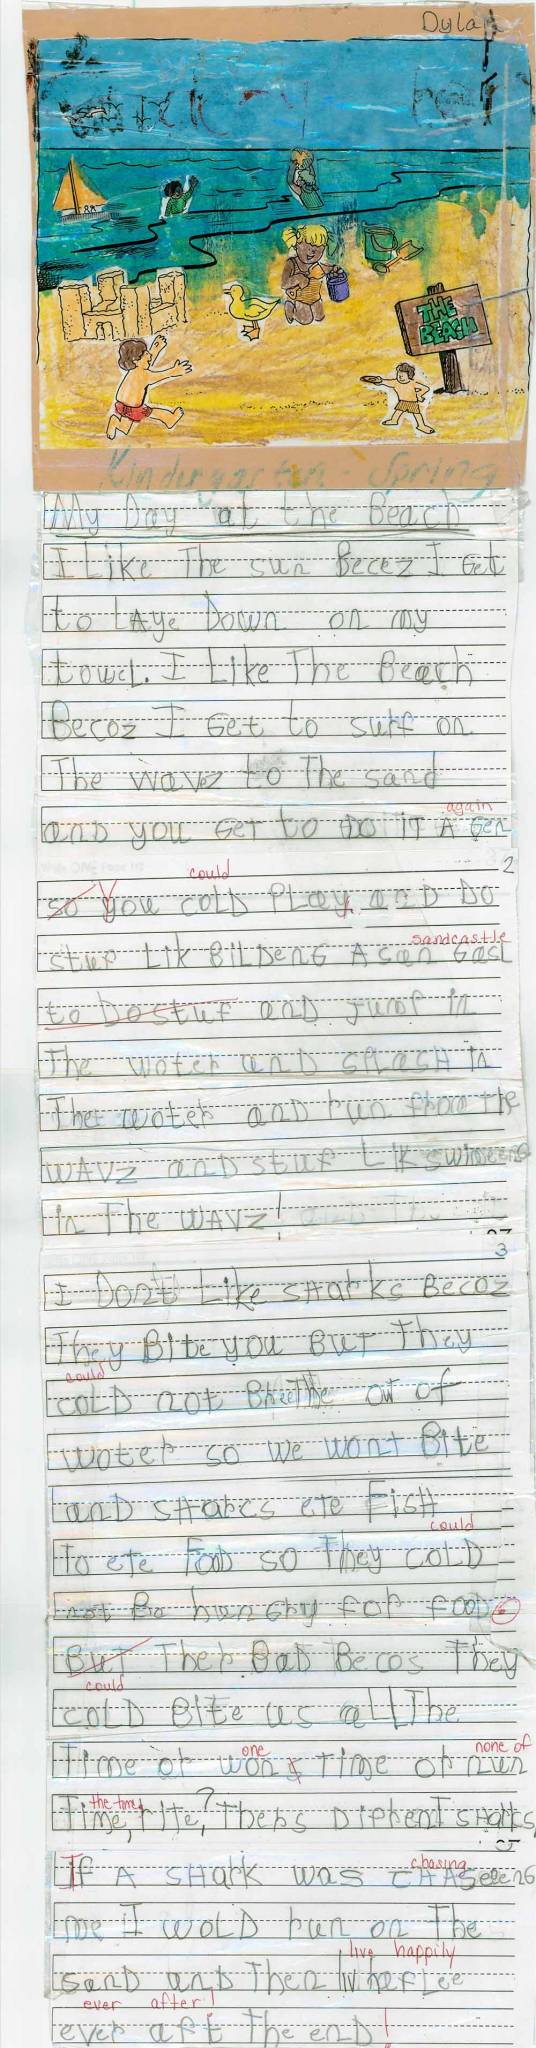 Dylan
THE
BEACH
Kindergarten - Spring
My Day at the Beach
I Like The sun Becez I Get
to Laye Down on my
towel. I Like The Beach
Becoz I Get to surf on
The wavez to The sand
again
and you Get to Do iT A Gen
2
could
so you COLD PLay, anD Do
sandcastle
stuf Lik BiLDenG A san Gasl
to Do stuf anD jump in
The woter and spLasH in
The woter and run from the
wavz anD stuf Lik swimeeng
in The wavz!
3
I Don't Like sHarks Becoz
They Bite you BuT They
could
coLD not BreeThe out of
woter so we wont Bite
anD sHarcs ete FisH
could
To ete FooD so They coLD
not Be hunGry for fooD.
BuT Ther BaD Becos They
could
coLD Bite us aLL The
one none of
Time or won s Time or nun
the time
Time, rite? Thers DiphenT sharks,
chasing
If A sHark was cHAseeenG
me I woLD run on The
live happily
sanD anD Then liv hafLee
ever after!
ever aft The enD!